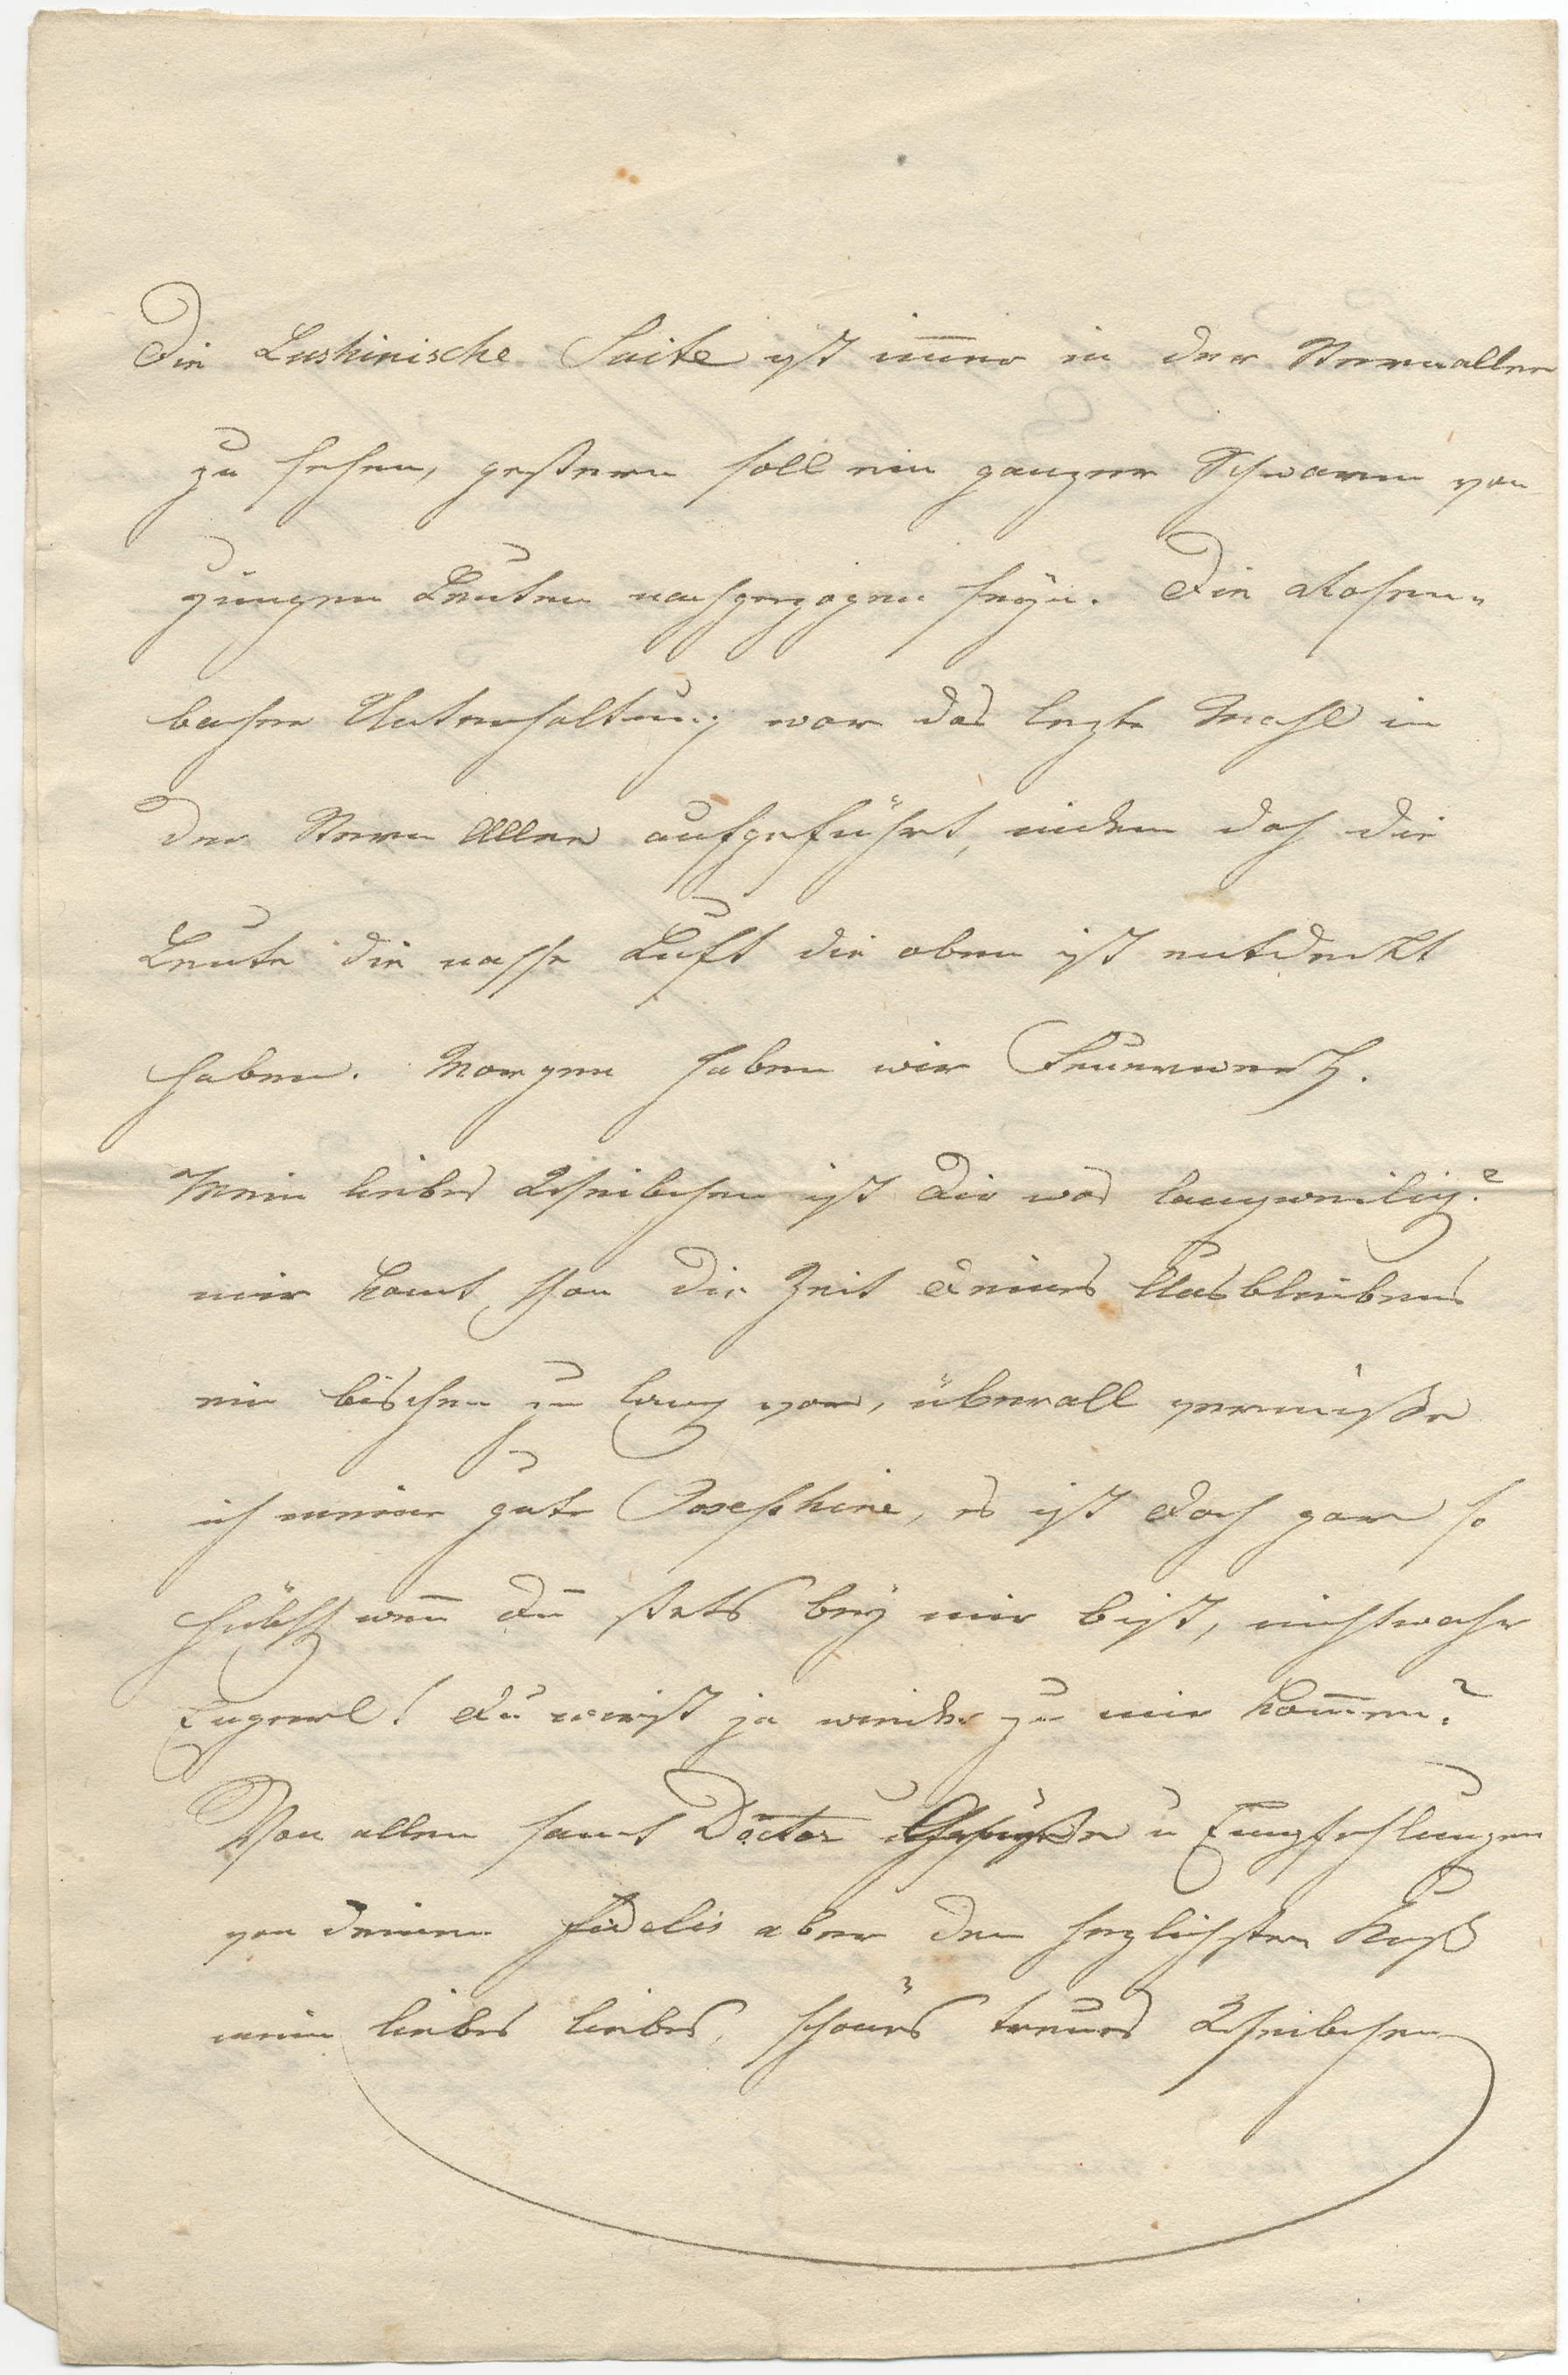 Die Luskinische Suite ist im̅er in der Sternallee
zu sehen, gestern soll ein ganzer Schwarm von
jungen Leuten nachgezogen seyn. Die
Unterhaltung war das lezte Mahl in
der Stern Allee aufgeführt, indem doch die
Leute die nasse Luft die oben ist entdeckt
haben. Morgen haben wir Feuerwerk.
Mein liebes Weibchen ist Dir was langweilig?
mir komt schon die Zeit Deines Ausbleibens
ein bischen zu lang vor, überall vermisse
ich meine gute Josephine, es ist doch gar so
hübsch wen̅ Du stets bey mir bist, nicht wahr
Engerl! Du wirst ja wieder zu mir kom̅en?
Von allen samt Doctor Grüße u Empfehlungen
von deinem fidelis aber den herzlichsten Kuß
mein liebes liebes, schönes treues Weibchen